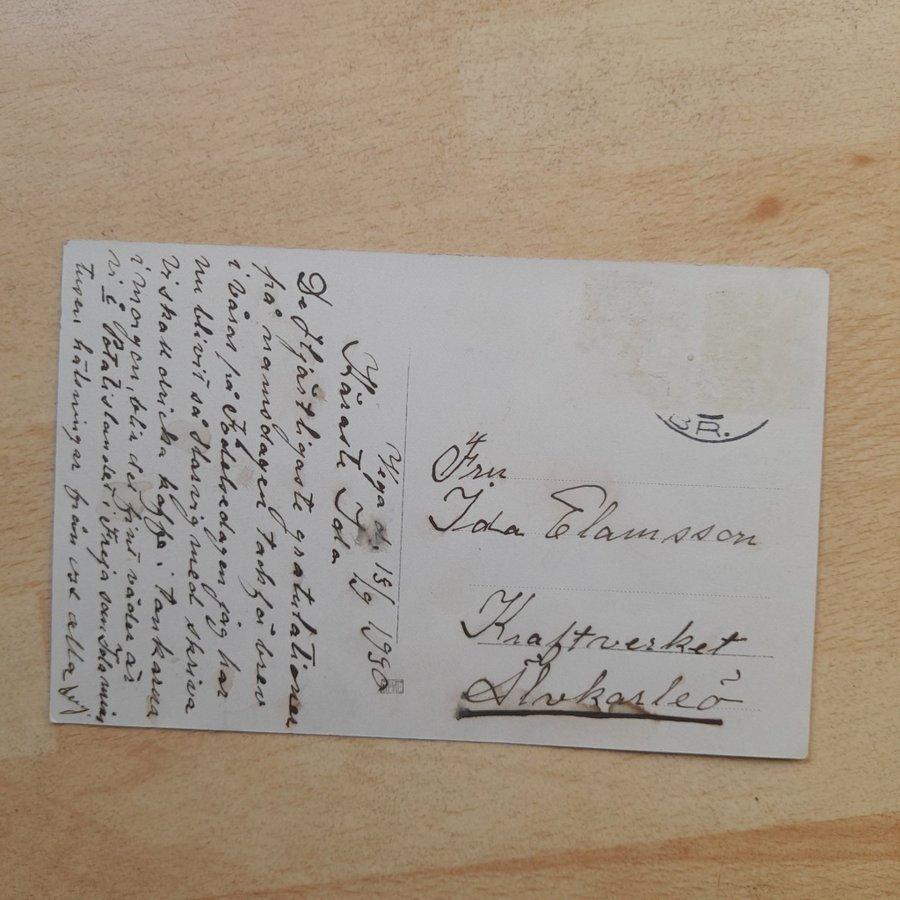 Vega d. 15/9 1930
Käraste Ida
De Hjärtligaste gratulationer
på namnsdagen tack för brev
i våras på födelsedagen jag har
nu blivit så slarvig med skriva
vi skall dricka kaffe i tankarna
i morgon, blir det fint väder är
vi i Potatislandet,
tusen hälsningar från oss alla
BR.
Fru
Ida Elamsson
Kraftverket
Älvkarleö